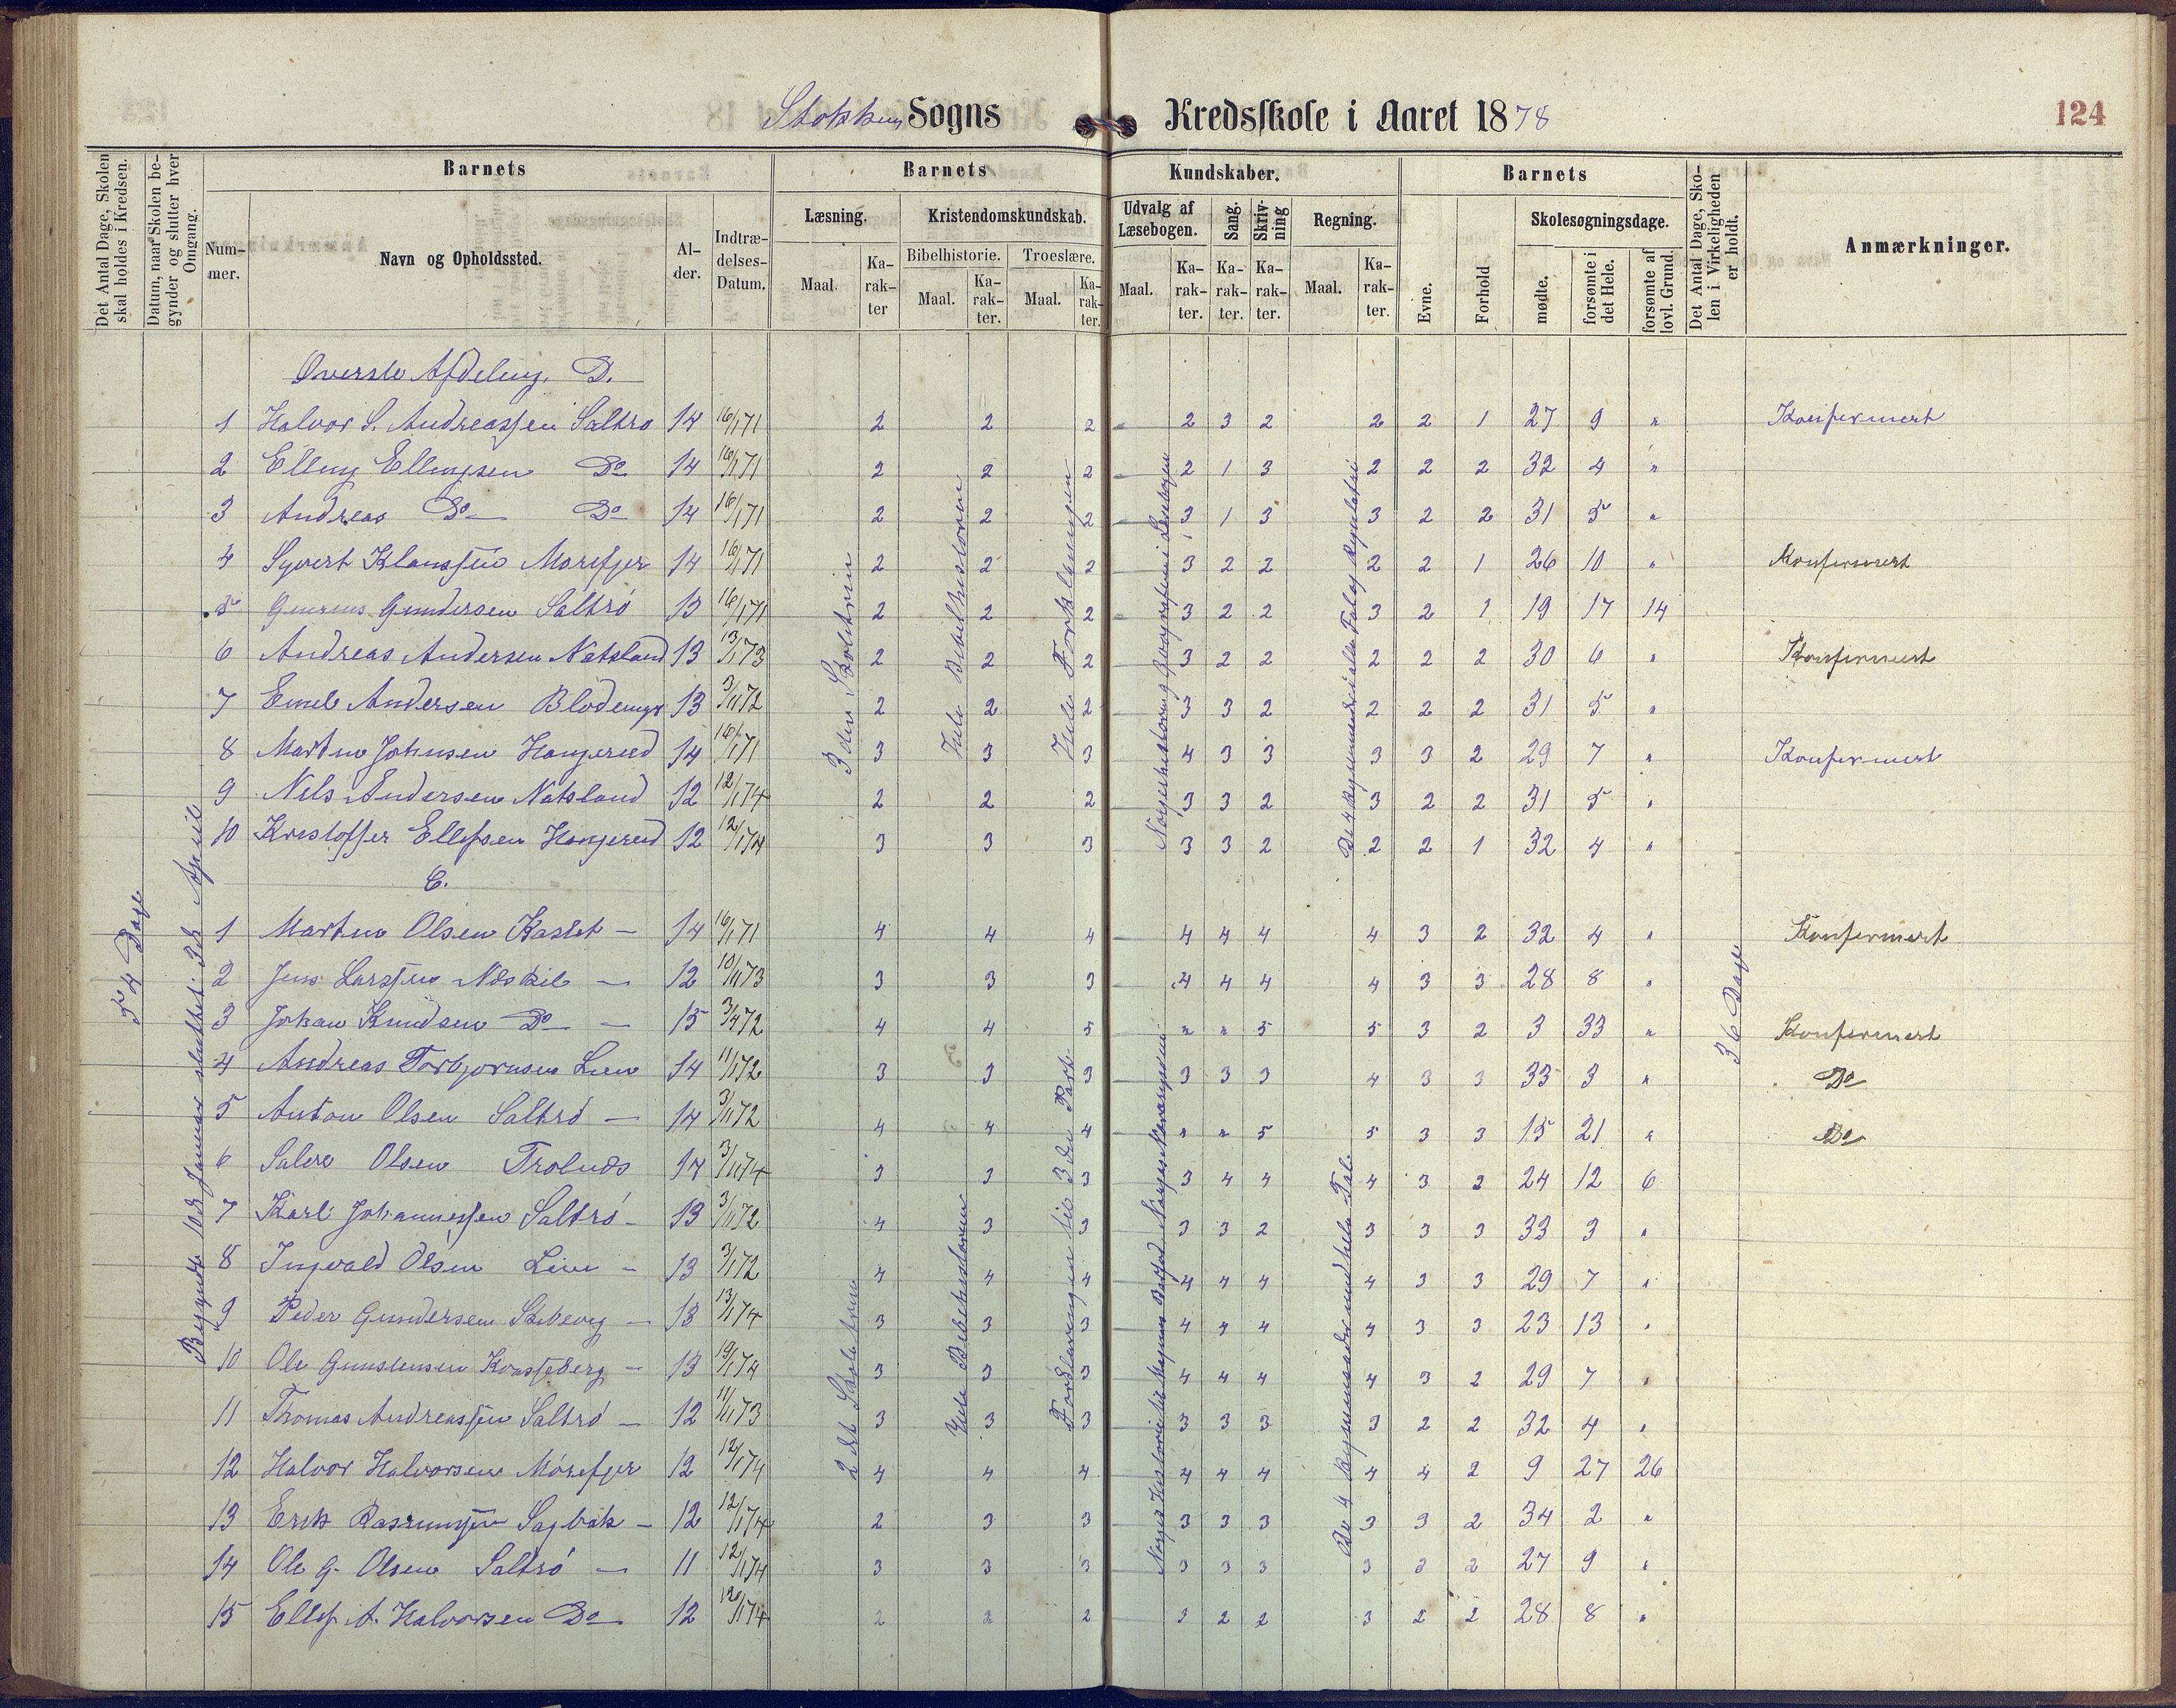 Stokken Sogns Kredsskole i Aaret 1878
124
Det Antal Dage, Skolen skal holdes i Kredsen.
Datum, naar Skolen begynder og slutter hver Omgang.
Barnets
Nummer.
Navn og Opholdssted.
Alder.
Indtrædelses-Datum.
Barnets Kundskaber.
Læsning.
Maal.
Karakter
Kristendomskundskab.
Bibelhistorie.
Maal.
Karakter.
Troeslære.
Maal.
Karakter.
Udvalg af Læsebogen.
Maal.
Karakter.
Sang.
Karakter.
Skrivning
Karakter.
Regning.
Maal.
Karakter.
Barnets
Evne.
Forhold
Skolesøgningsdage.
mødte.
forsømte i det Hele.
forsømte af lovl. Grund.
Det Antal Dage, Skolen i Virkeligheden er holdt.
Anmærkninger.
54 Dage
Begyndte 10de Januar sluttet 3de April
36 Dage
Øverste Afdeling. D.
3die Skoletrin
Hele Bibelhistorien
Hele Forklaringen
1 Halvor S. Andreassen Saltrø 14 16/1 71 2 2 2 2 3 2 2 2 1 27 9 " Konfirmert
2 Elling Ellingsen Do 14 16/1 71 2 2 2 2 1 3 2 2 2 32 4 "
3 Andreas Do Do 14 16/1 71 2 2 2 3 1 3 3 2 2 31 5 "
4 Syvert Klaussen Morefjær 14 16/1 71 2 2 2 3 2 2 2 2 1 26 10 " Konfirmert
5 Gundersen Saltrø 13 16/1 71 2 2 2 3 2 2 3 2 1 19 17 14
6 Andreas Andersen Natsland 13 13/1 73 2 2 2 3 2 2 2 2 2 30 6 " Konfirmert
7 Emil Andersen 13 3/11 72 2 2 2 3 3 2 2 2 2 31 5 "
8 Martin Johnsen Hangereid 14 16/1 71 3 3 3 4 3 3 3 3 2 29 7 " Konfirmert
9 Nils Andersen Natsland 12 12/1 74 2 2 2 3 3 2 3 2 2 31 5 "
10 Kristoffer Ellefsen Hangereid 12 12/1 74 3 3 3 3 3 2 2 2 1 32 4 "
C.
2det Skoletrin
Hele Bibelhistorien
Forklaringen til 3die Part.
1 Martin Olsen 14 16/1 71 4 4 4 4 4 4 4 3 2 32 4 " Konfirmert
2 Jens Larssen Neskil — 12 10/11 73 3 3 3 4 4 4 4 3 3 28 8 "
3 Johan Knudsen Do — 15 3/4 72 4 4 5 " " 5 5 3 2 3 33 " Konfirmert
4 Andreas Torbjørnsen Lien 14 11/1 72 3 3 3 3 3 3 4 3 3 33 3 " Do
5 Anton Olsen Saltrø — 14 3/11 72 4 4 4 " " 5 5 3 3 15 21 " Do
6 Olsen 14 3/11 74 3 3 3 3 4 4 4 3 2 24 12 6
7 Karl Johannessen Saltrø — 13 3/11 72 4 3 3 3 3 2 3 3 3 33 3 "
8 Ingvald Olsen Lien — 13 3/1 72 4 4 4 4 4 4 4 3 3 29 7 "
9 Peder Gundersen — 13 13/1 74 3 3 3 4 4 4 4 3 3 23 13 "
10 Ole Gunstensen — 13 19/1 74 3 3 3 4 4 4 4 3 2 29 7 "
11 Thomas Andreassen Saltrø — 12 11/11 73 3 3 3 3 3 3 3 2 2 32 4 "
12 Halvor Halvorsen Mørefjær 12 12/1 74 4 4 4 4 4 4 4 4 2 9 27 26
13 Erik Rasmussen Sagbak — 12 12/1 74 2 3 3 3 3 3 3 3 2 34 2 "
14 Ole G. Olsen Saltrø — 11 12/1 74 3 3 3 3 3 3 3 2 2 27 9 "
15 Ellef A. Halvorsen Do — 12 12/1 74 2 2 2 3 2 2 3 2 2 28 8 "